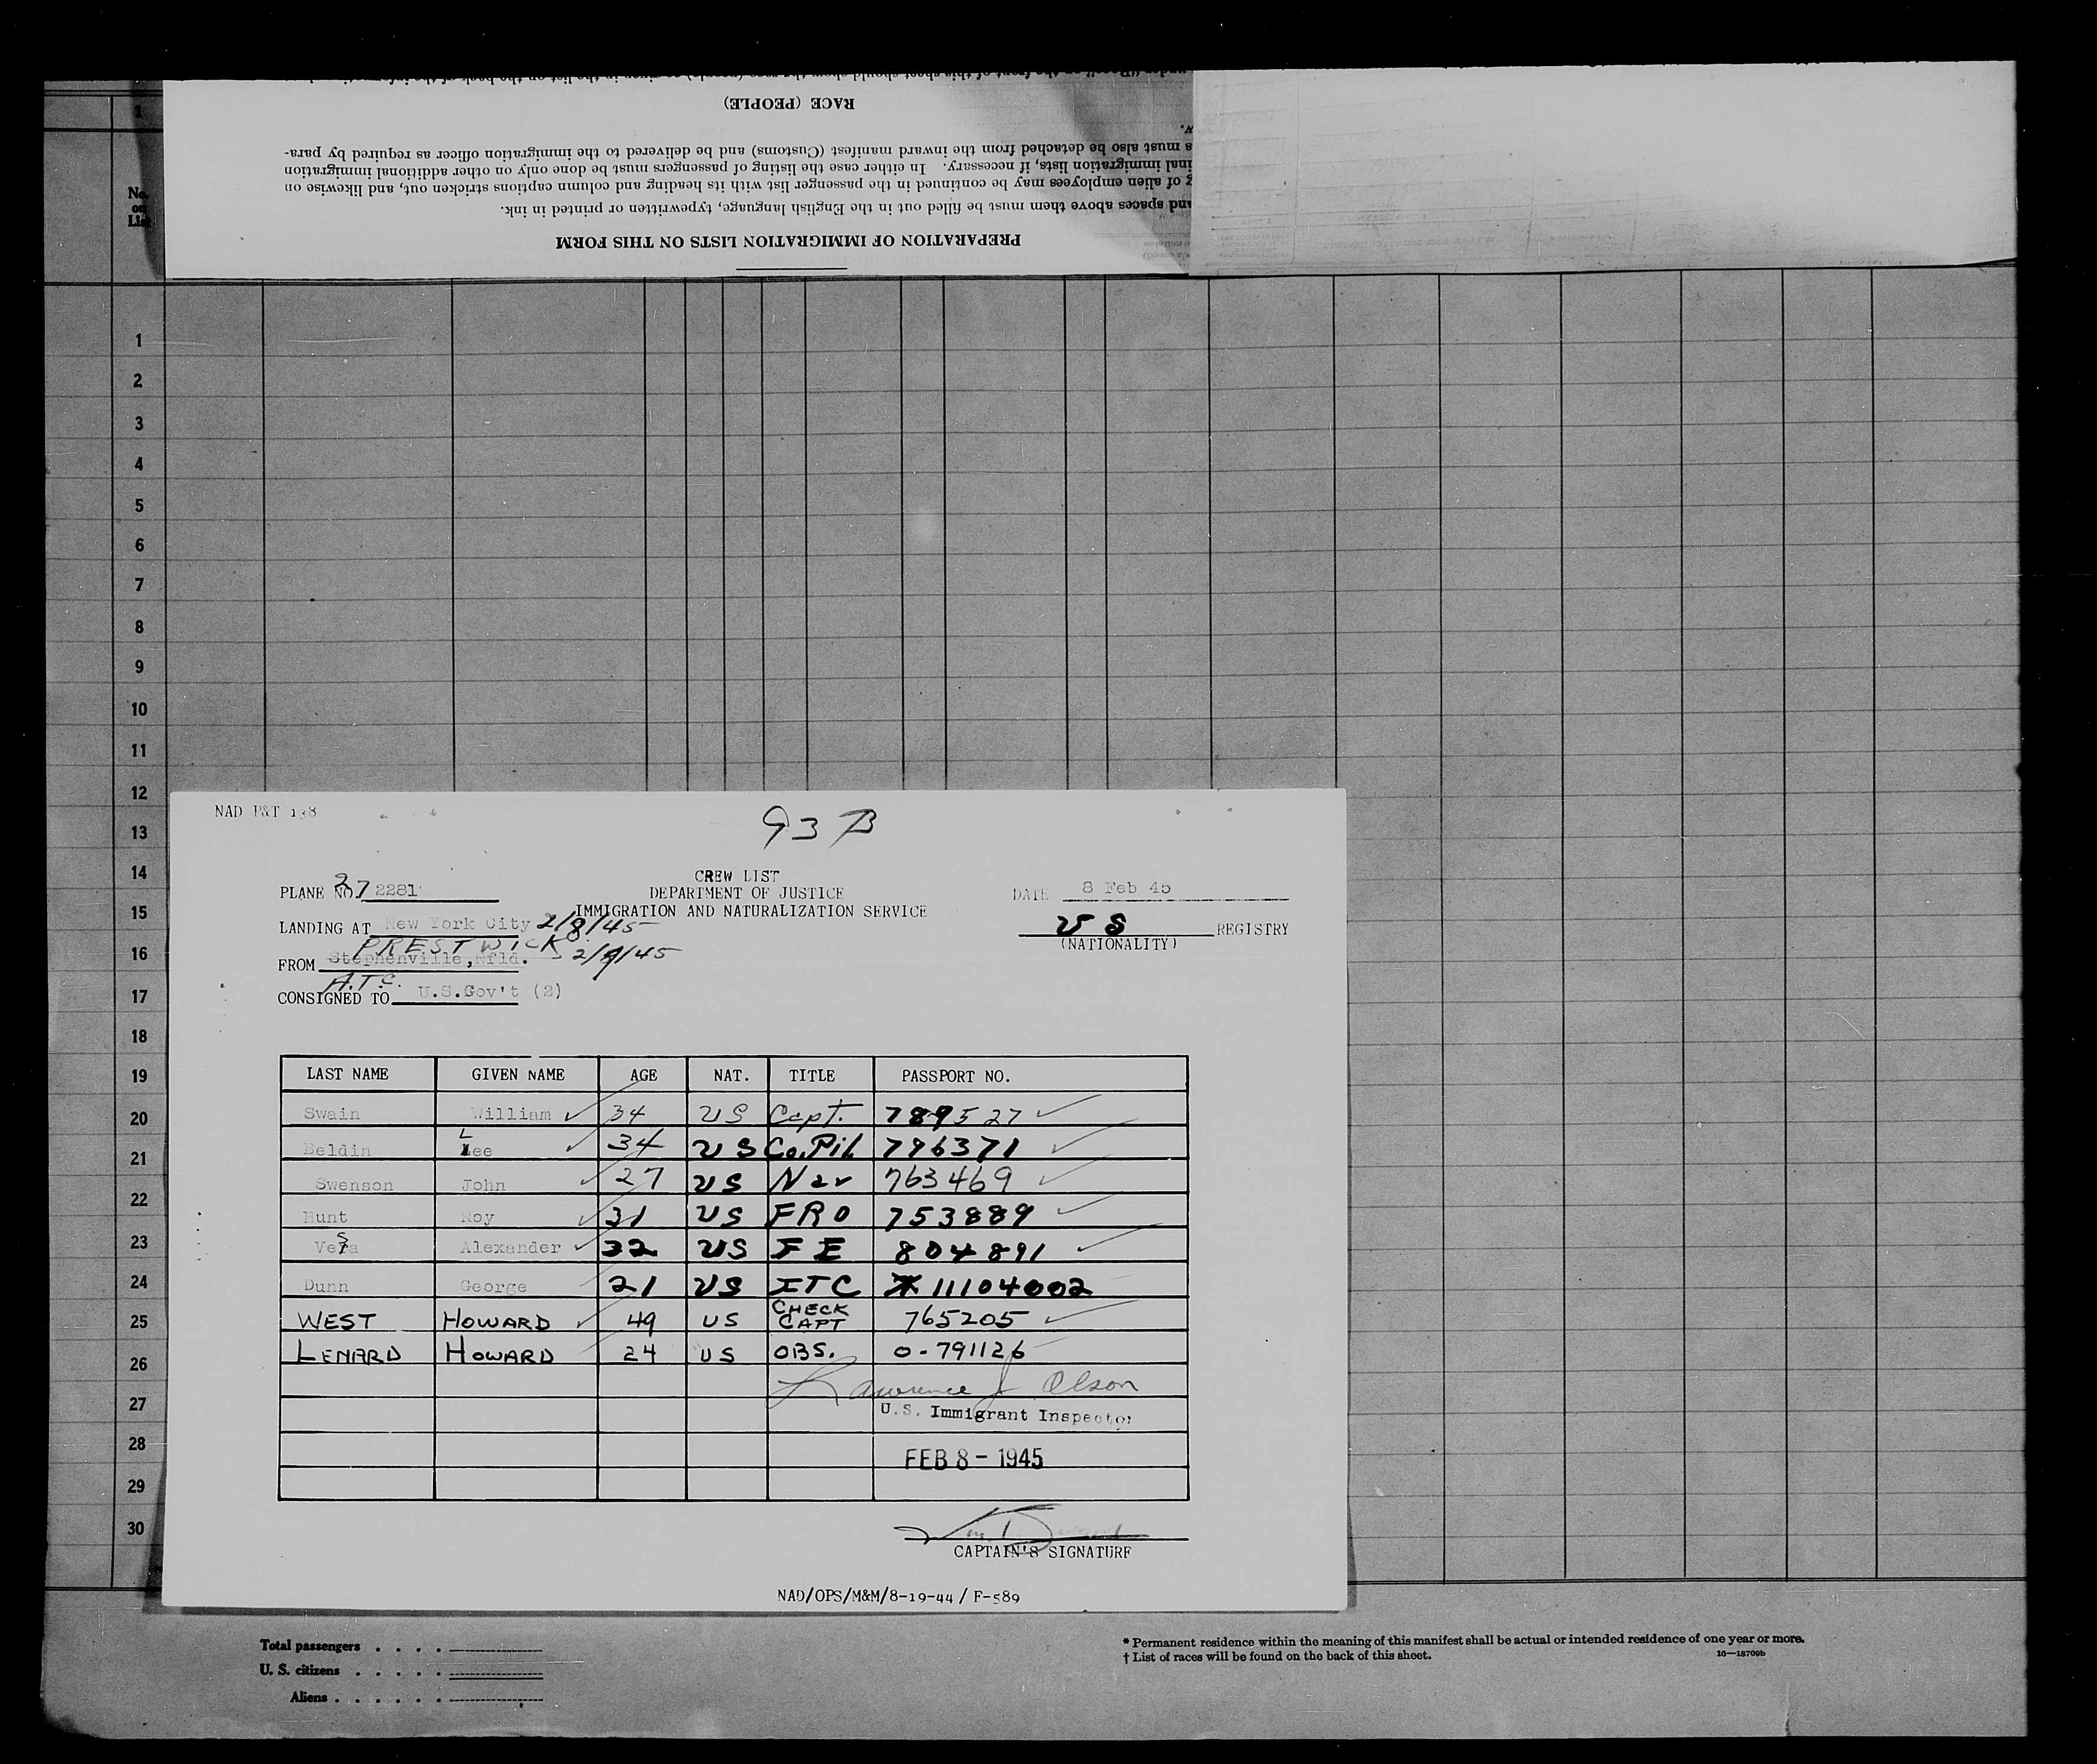 RACE (PEOPLE)
s must also be detached from the inward manifest (Customs) and be delivered to the immigration officer as required by para-
inal immigration lists, if necessary. In either case the listing of passengers must be done only on other additional immigration
g of alien employees may be continued in the passenger list with its heading and column captions stricken out, and likewise on
and spaces above them must be filled out in the English language, typewritten or printed in ink.
PREPARATION OF IMMIGRATION LISTS ON THIS FORM
No. on List
1
2
3
4
5
6
7
8
9
10
11
12
13
14
15
16
17
18
19
20
21
22
23
24
25
26
27
28
29
30
NAD P&T 138
93 B
CREW LIST
DEPARTMENT OF JUSTICE
IMMIGRATION AND NATURALIZATION SERVICE
PLANE NO. 272281
DATE 8 Feb 45
LANDING AT New York City 2/8/45
US REGISTRY
(NATIONALITY)
PRESTWICK
FROM Stephenville, Nfld.
A.T.C.
CONSIGNED TO U.S.Gov't (2)
LAST NAME GIVEN NAME AGE NAT. TITLE PASSPORT NO.
Swain William 34 US Capt. 789527
Beldin Lee 34 US Co.Pil 796371
Swenson John 27 US Nav 763469
Hunt Roy 31 US FRO 753889
Alexander 32 US FE 804891
Dunn George 21 US ITC 11104002
WEST HOWARD 49 US CHECK CAPT 765205
LENARD HOWARD 24 US OBS. O-791126
Lawrence J Olson
U.S. Immigrant Inspector
FEB 8 - 1945
CAPTAIN'S SIGNATURE
NAD/OPS/M&M/8-19-44 / F-589
Total passengers . . . .
U. S. citizens . . . . .
Aliens . . . . . .
* Permanent residence within the meaning of this manifest shall be actual or intended residence of one year or more.
† List of races will be found on the back of this sheet.
16—18709b